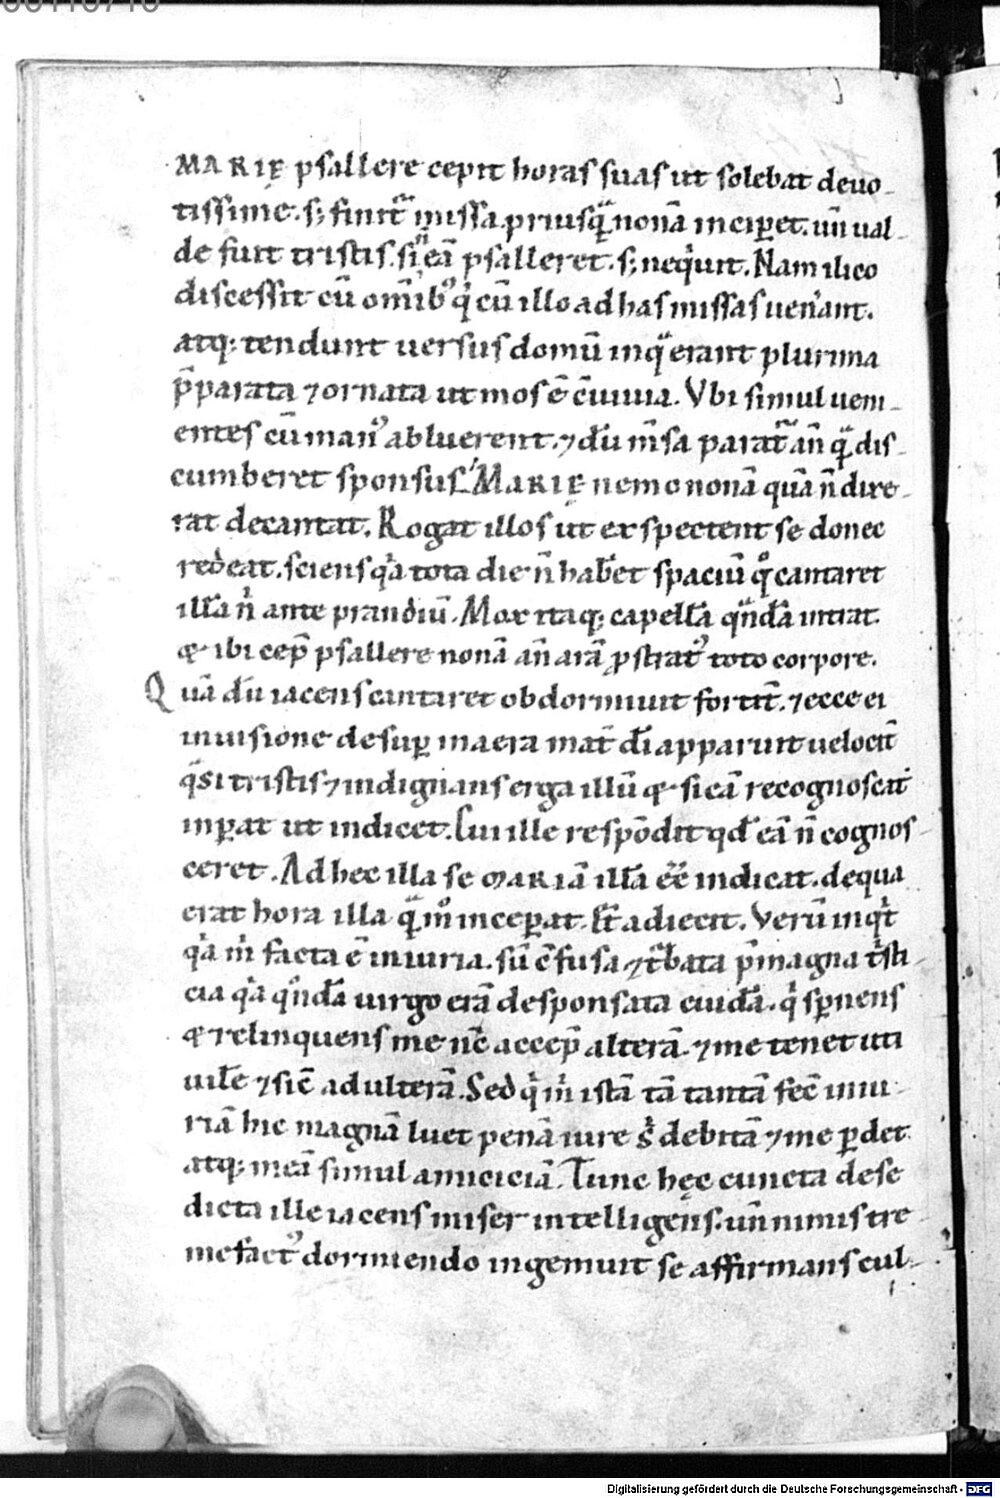 MARIĘ psallere cepit horas suas ut solebat deuo-
tissime. s; finitᷓ missa priusqᷓ nonā incip̄et. un̄ ual-
de fuit tristis. si n̄ eā psalleret. s; neqͥuit. Nam ilico
discessit cū om̄ibꝰ qͥ cū illo ad has missas uen̄ant.
atq; tendunt uersus domū inqᷓ erant plurima
p̄parata ⁊ ornata ut mos ē c̄uiuia. Vbi simul ueni-
entes cū manꝰ abluerent. ⁊ dū m̄sa paratᷓ an̄ qᷓ dis-
cumberet sponsus MARIĘ nemo nonā quā n̄ dixe-
rat decantat. Rogat illos ut exspectent se donec
redeat. sciens qͥa tota die n̄ hab̄et spaciū qͦ cantaret
illā n̄ ante prandiū. Mox itaq; capellā quandā intrat.
⁊ ibi cep̄ psallere nonā an̄ arā ꝓstratꝰ toto corpore.
Quā dū iacens cantaret obdormiuit fortit̄. ⁊ ecce ei
in uisione desup̄ in aera mat̄ dī apparuit uelocit̄
qᷓsi tristis ⁊ indignans erga illū ⁊ si eā recognoscat
inp̄at ut indicet. Cui ille respōdit qd̄ eā n̄ cognos-
ceret. Ad hec illa se MARIā illā eē̄ indicat. de qua
erat hora illa qᷓ mͦ incep̄at. Et adiecit. Verū inqͥt
qͥa mͥ facta ē iniuria. sū c̄fusa ⁊ tͥbata p̄ magna tͥsti-
cia qͥa quᷓdā uirgo erā desponsata cuidā. qͥ sp̄nens
⁊ relinquens me nc̄ accep̄ alterā. ⁊ me tenet uti
uilē ⁊ sic̄ adulterā. Sed qͥ mͥ istā tā tantā fec̄ iniu-
riā hic magnā luet penā iure sͥ debitā ⁊ me p̄det
atq; meā simul amiciciā. Tunc hęc cuncta de se
dicta ille iacens miser intelligens. un̄ nimis tre-
mefactꝰ dormiendo ingemuit se affirmans cul-
Digitalisierung gefördert durch die Deutsche Forschungsgemeinschaft - DFG